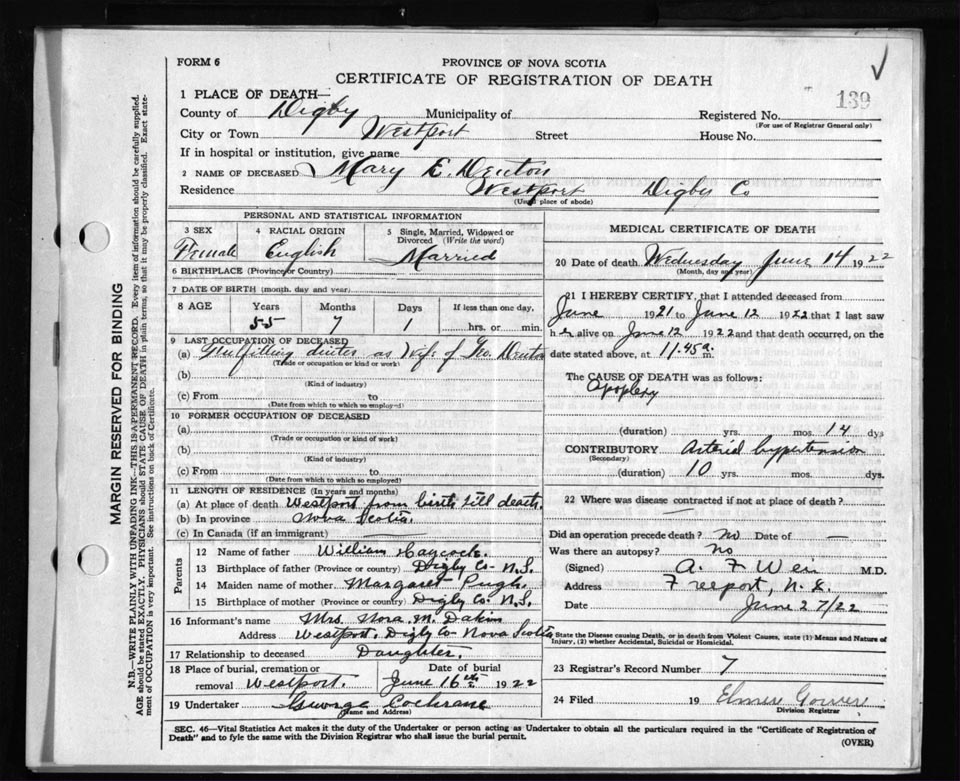 FORM 6
PROVINCE OF NOVA SCOTIA
CERTIFICATE OF REGISTRATION OF DEATH
139
1 PLACE OF DEATH—
County of Digby Municipality of Registered No.
(For use of Registrar General only)
City or Town Westport Street House No.
If in hospital or institution, give name
2 NAME OF DECEASED Mary E. Denton
Residence Westport Digby Co
(Usual place of abode)
PERSONAL AND STATISTICAL INFORMATION
3 SEX 4 RACIAL ORIGIN 5 Single, Married, Widowed or Divorced (Write the word)
Female English Married
6 BIRTHPLACE (Province or Country)
7 DATE OF BIRTH (month, day and year)
8 AGE Years Months Days If less than one day,
55 7 1 hrs. or min.
9 LAST OCCUPATION OF DECEASED
(a) Fulfilling duties as Wife of Geo. Denton
(Trade or occupation or kind or work)
(b)
(Kind of industry)
(c) From to
(Date from which to which so employed)
10 FORMER OCCUPATION OF DECEASED
(a)
(Trade or occupation or kind of work)
(b)
(Kind of industry)
(c) From to
(Date from which to which so employed)
11 LENGTH OF RESIDENCE (In years and months)
(a) At place of death Westport from birth till death.
(b) In province Nova Scotia.
(c) In Canada (if an immigrant) —
Parents
12 Name of father William Haycock.
13 Birthplace of father (Province or country) Digby Co- N.S.
14 Maiden name of mother Margaret Pugh.
15 Birthplace of mother (Province or country) Digby Co. N.S.
16 Informant's name Mrs. Nora. M. Dakin
Address Westport. Digby Co- Nova Scotia
17 Relationship to deceased Daughter.
18 Place of burial, cremation or removal Westport. Date of burial June 16th 1922
19 Undertaker George Cochrane
(Name and Address)
MEDICAL CERTIFICATE OF DEATH
20 Date of death Wednesday June 14 1922
(Month, day and year)
21 I HEREBY CERTIFY, that I attended deceased from
June 1921 to June 12 1922 that I last saw
her alive on June 12 1922 and that death occurred, on the
date stated above, at 11.45 a. m.
The CAUSE OF DEATH was as follows:
Apoplexy
(duration) yrs. mos. 14 dys
CONTRIBUTORY Arterial hypertension
(Secondary)
(duration) 10 yrs. mos. dys.
22 Where was disease contracted if not at place of death?
Did an operation precede death? no Date of —
Was there an autopsy? no
(Signed) A. F Weir M.D.
Address Freeport, N.S.
Date June 27/22
State the Disease causing Death, or in death from Violent Causes, state (1) Means and Nature of Injury, (2) whether Accidental, Suicidal or Homicidal.
23 Registrar's Record Number 7
24 Filed 19 Elmer Gower
Division Registrar
SEC. 46—Vital Statistics Act makes it the duty of the Undertaker or person acting as Undertaker to obtain all the particulars required in the "Certificate of Registration of
Death" and to fyle the same with the Division Registrar who shall issue the burial permit.
(OVER)
MARGIN RESERVED FOR BINDING
N.B.—WRITE PLAINLY WITH UNFADING INK—THIS IS A PERMANENT RECORD. Every item of information should be carefully supplied.
AGE should be stated EXACTLY. PHYSICIANS should STATE CAUSE OF DEATH in plain terms, so that it may be properly classified. Exact state-
ment of OCCUPATION is very important. See instructions on back of Certificate.